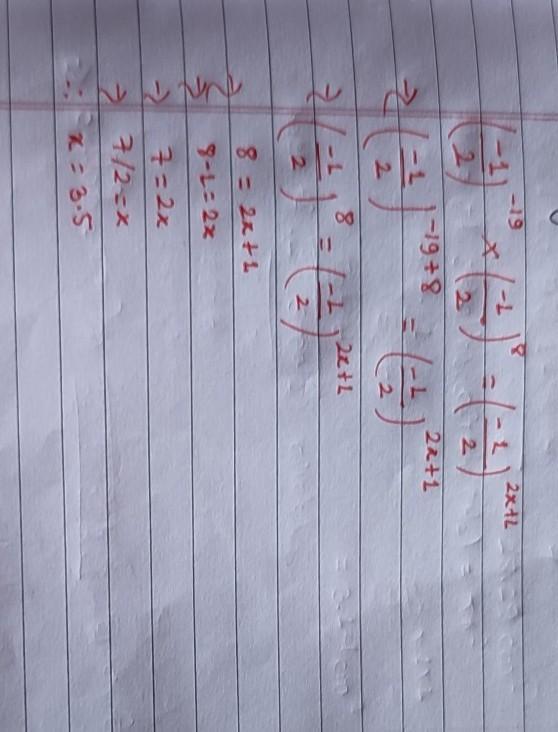 (-1/2)^-19 × (-1/2)^8 = (-1/2)^2x+1
→ (-1/2)^-19+8 = (-1/2)^2x+1
→ (-1/2)^8 = (-1/2)^2x+1
→ 8 = 2x+1
→ 8-1=2x
→ 7 = 2x
→ 7/2=x
∴ x = 3.5